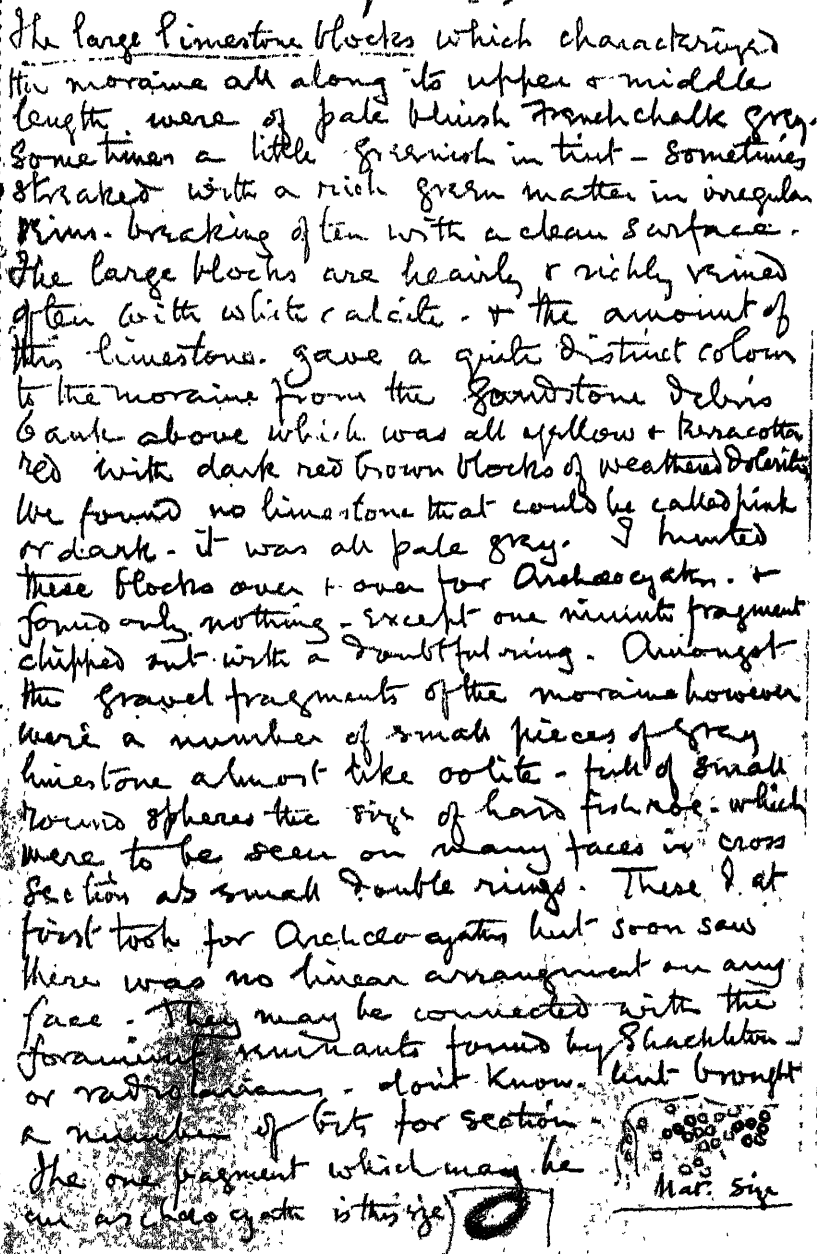 The large limestone blocks which characterized
the moraine all along its upper & middle
length were of pale bluish French chalk grey.
Sometimes a little greenish in tint – sometimes
streaked with a rich green matter in irregular
veins. breaking often with a clean surface.
The large blocks are heavily & richly veined
often with white calcite. & the amount of
this limestone. gave a quite distinct colour
to the moraine from the Sandstone debris
bank above which was all yellow & terracotta
red with dark red brown blocks of weathered dolerite
We found no limestone that could be called pink
or dark – it was all pale gray. I hunted
these blocks over & over for Archaeocyaths. &
found only nothing – except one minute fragment
chipped out with a doubtful ring. Amongst
the gravel fragments of the moraine however
were a number of small pieces of gray
limestone almost like oolite – full of small
round spheres the size of hard fish roe – which
were to be seen on many faces in cross
section as small double rings. These I at
first took for Archaeocyaths but soon saw
there was no linear arrangment on any
face. They may be connected with the
remnants found by Shackleton –
or radiolarians – don't know. but brought
a number of bits for section –
The one fragment which may be
an archaeocyath is this size
Nat. Size